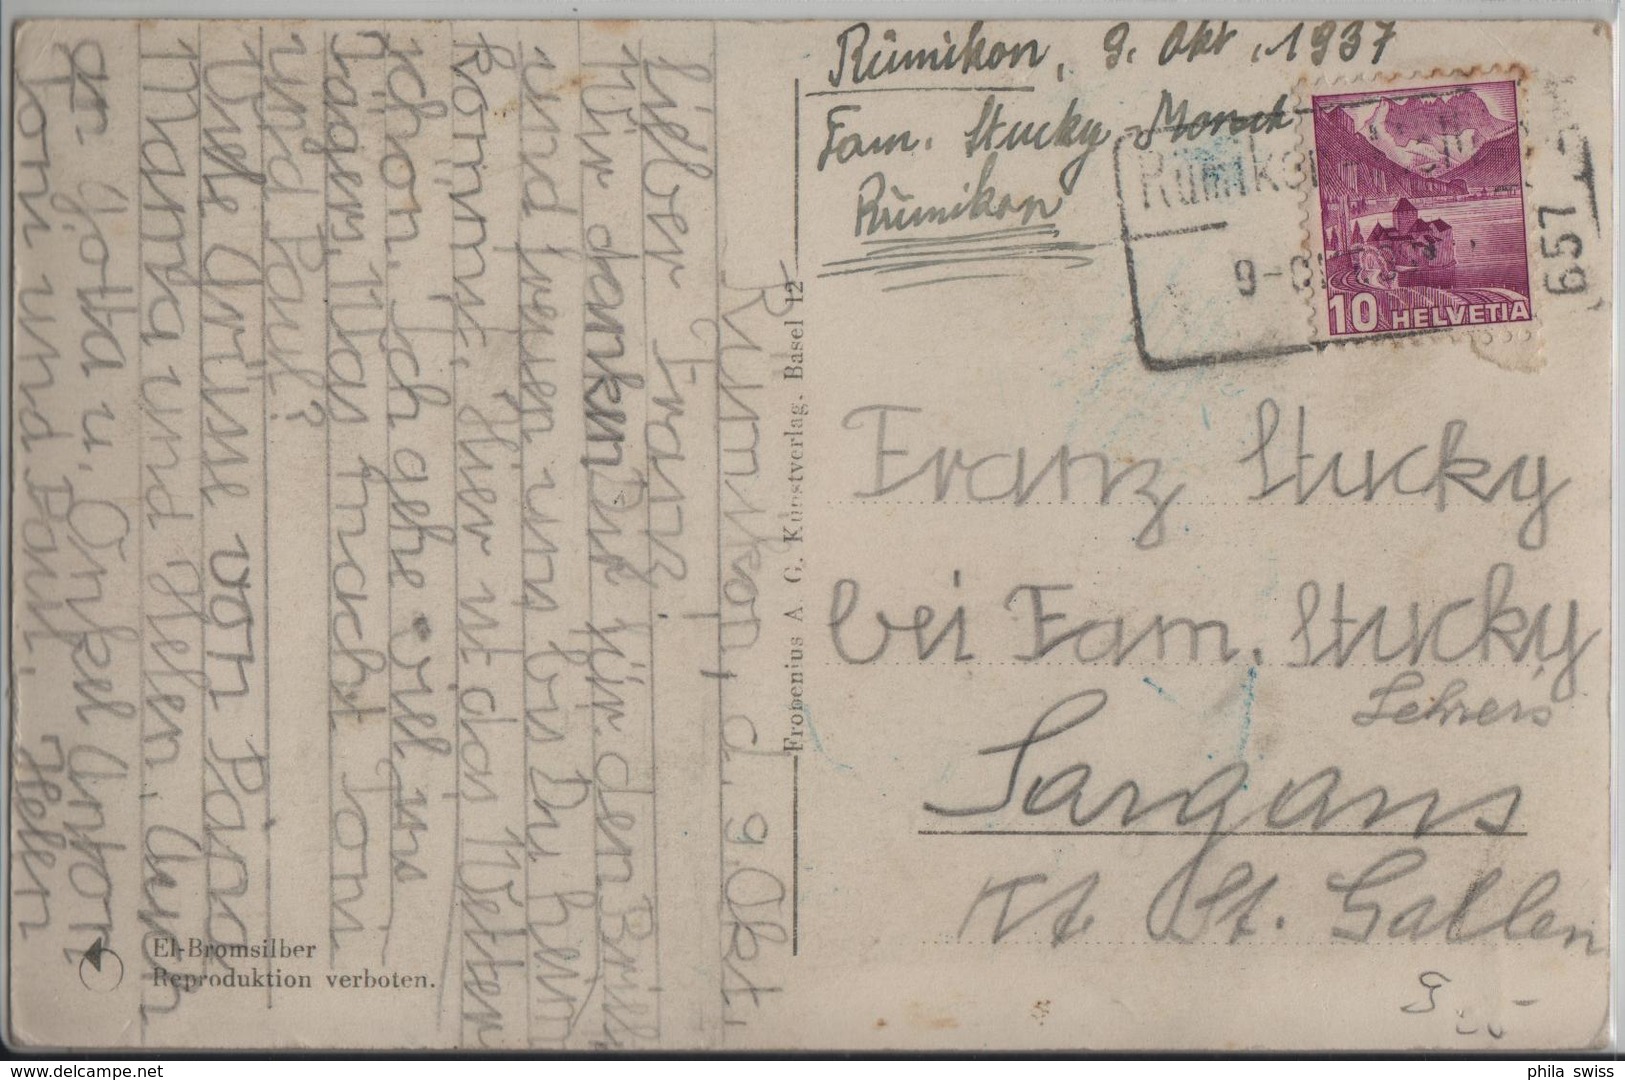 Rümikon, d. 9. Okt.
Lieber Franz!
Wir danken Dir für den Brief
und freuen uns bis Du heim
kommst. Hier ist das Wetter
schon. Ich gehe viel ins
Jagen. Was macht Toni
und Paul?
Viele Grüsse von Päuli
Mama und Helen. Auch
gr. Gotta u. Onkel Anton
Toni und Paul. Helen
El-Bromsilber
Reproduktion verboten.
Frobenius A. G. Kunstverlag. Basel 12
Rümikon, 9. Okt. 1937
Fam. Stucky
Rümikon
Rümikon
9-
651
10 HELVETIA
Franz Stucky
bei Fam. Stucky
Lehrers
Sargans
Kt. St. Gallen
phila swiss